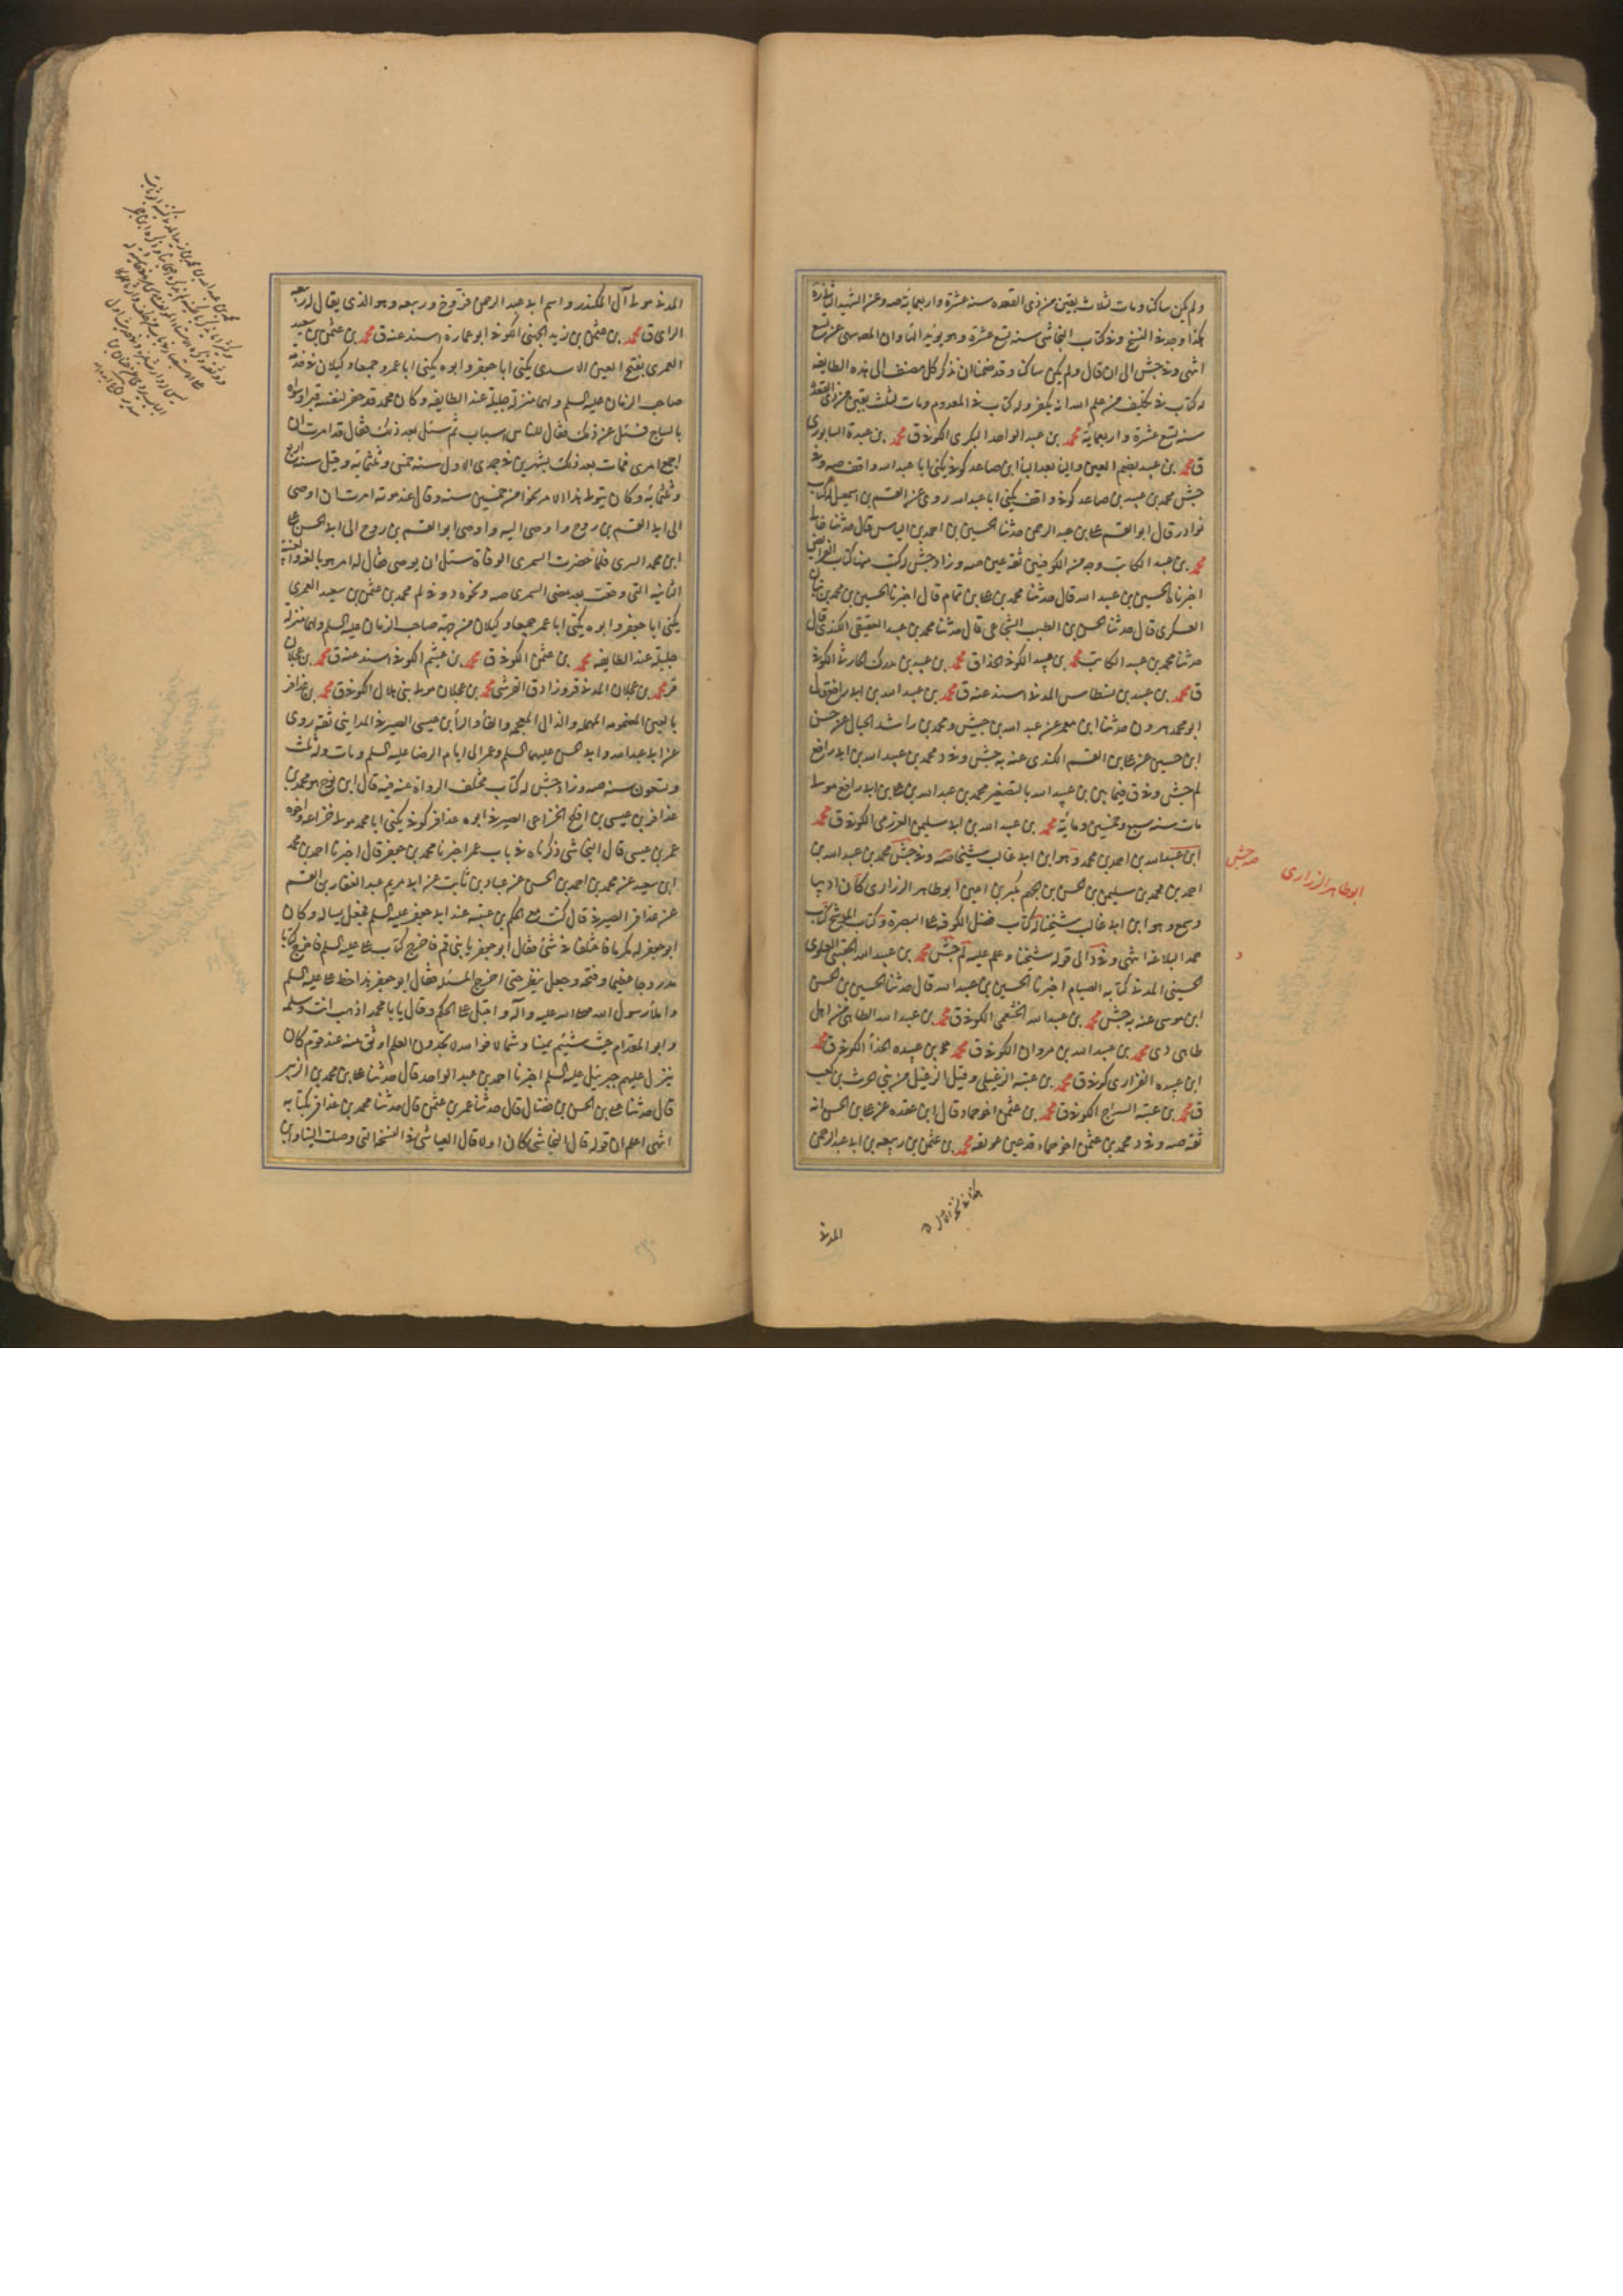 ولم يكن ساكنا ومات لثلاث بقين من ذى القعده سنه عشرة واربعمائة صه وعن الشهيد الثانى ره
هكذا وجد فى النسخ وفى كتاب النجاشى سنه تسع عشرة وهو يؤيد
انتهى وفى جش الى ان قال ولم يكن ساكنا وقد ضمنا ان نذكر كل مصنف الى هذه الطايفه
له كتاب فى تكليف من علم الله انه يكفر وله كتاب فى المعدوم ومات لثلث بقين من ذى القعدة
سنه تسع عشرة واربعمائة محمد بن عبد الواحد البكرى الكوفى ق محمد بن عبدة السابورى
ق محمد بن عبيد بضم العين والياء بعد الباء ابن صاعد كوفى يكنى ابا عبد الله واقف صه وفى
جش محمد بن عبيد بن صاعد كوفى واقف يكنى ابا عبد الله روى عن القسم بن اسمعيل له كتاب
نوادر قال ابو القسم على بن عبد الرحمن حدثنا الحسين بن احمد بن الياس قال حدثنا خالى
محمد بن عبد الكاتب وجه من الكوفيين ثقة عين صه وزاد جش له كتب منها كتاب الفرائض
اخبرنا الحسين بن عبيد الله قال حدثنا محمد بن على بن تمام قال اخبرنا الحسين بن محمد بن
العسكرى قال حدثنا الحسن بن الطيب الشجاعى قال حدثنا محمد بن عبد العقيقى الكندى قال
حدثنا محمد بن عبد الكاتب محمد بن عبيد الكوفى الحذاء ق محمد بن عبيد بن مدرك الحارثى الكوفى
ق محمد بن عبيد بن نسطاس المدنى اسند عنه ق محمد بن عبيد الله بن ابى رافع قال
ابو محمد هرون حدثنا ابن معمر عن عبد الله بن جيش ومحمد بن راشد الحبال عن حسن
ابن حسين عن على بن القسم الكندى عنه به جش وفى د محمد بن عبيد الله بن ابى رافع
لم جش وفى ق فيما بين بن عبيد الله بالتصغير محمد بن عبد الله بن على بن ابى رافع مولى
مات سنه سبع وخمسين ومائة محمد بن عبيد الله بن ابى سليمن العرزمى الكوفى ق محمد
ابن عبيد الله بن احمد بن محمد وهو ابن ابى غالب شيخنا صه وفى جش محمد بن عبيد الله بن
احمد بن محمد بن سليمن بن الحسن بن الجهم بن بكير بن اعين ابو طاهر الزرارى كان اديبا
وسمع وهو ابن ابى غالب شيخنا له كتاب فضل الكوفه على البصرة وكتاب الموشح كتاب
حمد البلاغه انتهى وفى د الى قوله شيخنا وعلم عليه لم جش محمد بن عبيد الله الحسينى العلوى
الحسينى المدنى كتابه الصيام اخبرنا الحسين بن عبيد الله قال حدثنا الحسين بن الحسن
ابن موسى عنه به جش محمد بن عبيد الله الخثعمى الكوفى ق محمد بن عبيد الله الطاهى من اهل
طاهى دى محمد بن عبيد الله بن مروان الكوفى ق محمد بن عبيده الحذاء الكوفى ق محمد
ابن عبيده الفزارى كوفى ق محمد بن عتبه الزغيلى وقيل الزغيل من بنى الحرث بن كعب
ق محمد بن عتبه السراج الكوفى ق محمد بن عثمن اخو حماد قال ابن عقده عن على بن الحسن انه
ثقه صه وفى د محمد بن عثمن اخو حماد قد عين عو ثقه محمد بن عثمن بن ربيعه بن ابى عبد الرحمن
صه جش
ابو طاهر الزرارى
د
المدنى
المدنى مولى آل المنكدر واسم ابى عبد الرحمن فروخ وربيعه وهو الذى يقال له ربيعه
الراى ق محمد بن عثمن بن زيد الجهنى الكوفى ابو عماره اسند عنه ق محمد بن عثمن بن سعيد
العمرى بفتح العين الاسدى يكنى ابا جعفر وابوه يكنى ابا عمرو جميعا وكيلان فى خدمة
صاحب الزمان عليه السلم ولهما منزلة جليلة عند الطايفه وكان محمد قد حفر لنفسه قبرا وسواه
بالساج فسئل عن ذلك فقال للناس اسباب ثم سئل بعد ذلك فقال قد امرت ان
اجمع امرى فمات بعد ذلك بشهرين فى جمدى الاولى سنه خمس وثلثمائه وقيل سنه اربع
وثلثمائه وكان يتولى هذا الامر نحوا من خمسين سنه وقال عند موته امرت ان اوصى
الى ابى القسم بن روح واوصى اليه واوصى ابو القسم بن روح الى ابى الحسن على
ابن محمد السمرى فلما حضرت السمرى الوفاة سئل ان يوصى فقال لله امر هو بالغه والغيبة
الثانيه التى وقعت بعد مضى السمرى صه ونحوه د وفى لم محمد بن عثمن بن سعيد العمرى
يكنى ابا جعفر وابوه يكنى ابا عمر جميعا وكيلان من جهة صاحب الزمان عليه السلم ولهما منزلة
جليلة عند الطايفه محمد بن عثمن الكوفى ق محمد بن عثيم الكوفى اسند عنه ق محمد بن عجلان
قر محمد بن عجلان المدنى قر وزاد ق القرشى محمد بن عجلان مولى بنى هلال الكوفى ق محمد بن عذافر
بالعين المضمومه المهمله والذال المعجمه والفاء والراء ابن عيسى الصيرفى المداينى ثقه روى
عن ابى عبد الله وابى الحسن عليهما السلم وعمر الى ايام الرضا عليه السلم ومات وله ثلث
وتسعون سنه صه وزاد جش له كتاب تختلف الرواة عنه فيه قال ابن نوح هو محمد بن
عذافر بن عيسى بن افلح الخزاعى الصيرفى ابوه عذافر كوفى يكنى ابا محمد مولى خزاعه واخوه
عمر بن عيسى قال النجاشى ذكرناه فى باب عمر اخبرنا محمد بن جعفر قال اخبرنا احمد بن محمد
ابن سعيد عن محمد بن احمد بن الحسن عن عباد بن ثابت عن ابى مريم عبد الغفار بن القسم
عن عذافر الصيرفى قال كنت مع الحكم بن عتيبه عند ابى جعفر عليه السلم فجعل يساله وكان
ابو جعفر له مكرما فاختلفا فى شئ فقال ابو جعفر يا بنى قم فاخرج كتاب على عليه السلم فاخرج كتابا
مدروجا عظيما وفتحه وجعل ينظر حتى اخرج المسئله فقال ابو جعفر هذا خط على عليه السلم
واملاء رسول الله صلى الله عليه وآله واقبل على الحكم وقال يا با محمد اذهب انت وسلمه
وابو المقدام حيث شئتم يمينا وشمالا فوالله لا تجدون العلم اوثق منه عند قوم كان
ينزل عليهم جبرئيل عليه السلم اخبرنا احمد بن عبد الواحد قال حدثنا على بن محمد بن الزبير
قال حدثنا على بن الحسن بن فضال قال حدثنا عمر بن عثمن قال حدثنا محمد بن عذافر بكتابه
انتهى اعلم ان قوله قال النجاشى كان اولا قال العياشى فى النسخه التى وصلت الينا وبين